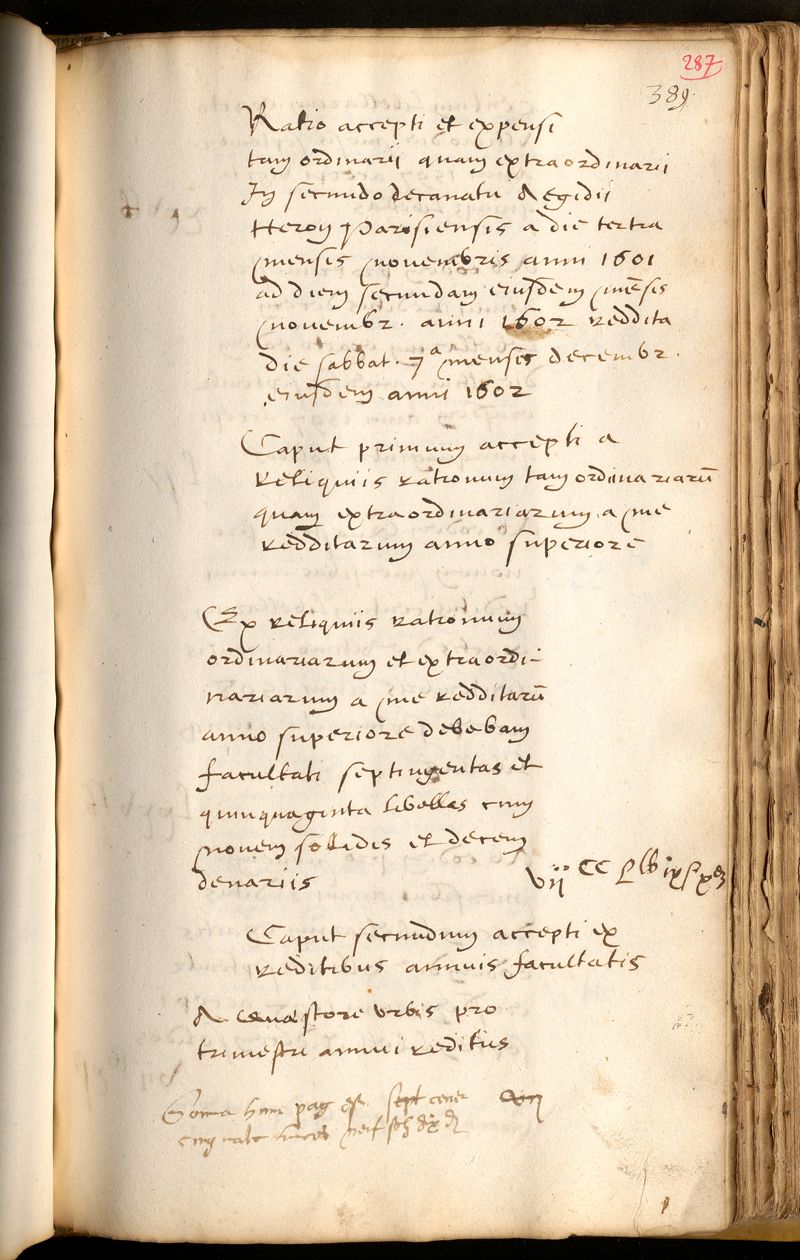 287
389.
Ratio accepti et expensi
tam ordinarii quam extraordinarii
In secundo decanatu Aegidii
Heron Parisiensis a die tertia
mensis novembris anni 1601
ad diem secundam eiusdem mēsis
novembr. anni 1602 reddita
die sabbat. 7ª mensis decembr.
eiusdem anni 1602
Caput primum accepti a
reliquiis rationum tam ordinariarū
quam extraordinariarum a me
redditarum anno superiore
Ex reliquiis rationum
ordinariarum et extraordi-
nariarum a me redditarū
anno superiore debebam
facultati septingentas et
quinquaginta libellas cum
novem solidis et decem
denariis
vii CC L lb ix s x d
Caput secundum accepti ex
reditibus annuis facultatis
A quaestore urbis pro
trimestri annui reditus
pag sept